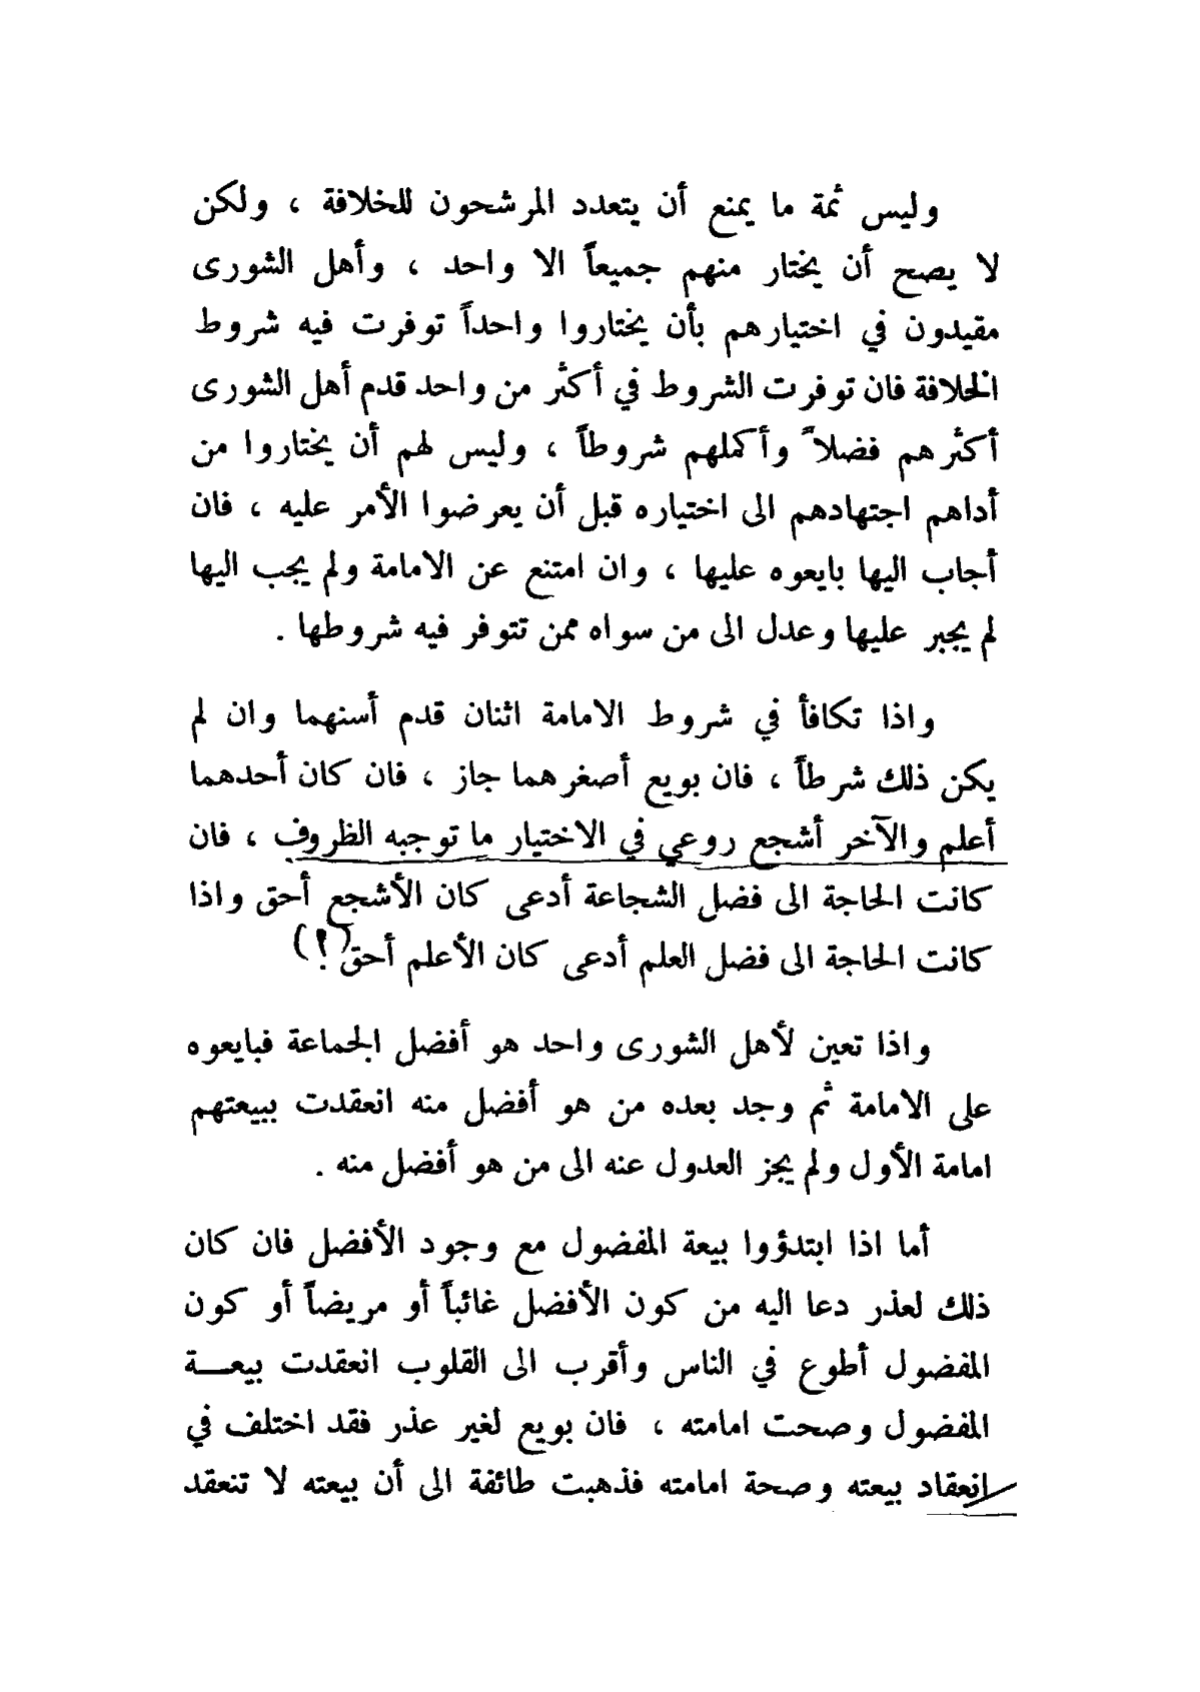 وليس ثمة ما يمنع أن يتعدد المرشحون للخلافة ، ولكن
لا يصح أن يختار منهم جميعاً الا واحد ، وأهل الشورى
مقيدون في اختيارهم بأن يختاروا واحداً توفرت فيه شروط
الخلافة فان توفرت الشروط في أكثر من واحد قدم أهل الشورى
أكثرهم فضلاً وأكملهم شروطاً ، وليس لهم أن يختاروا من
أداهم اجتهادهم الى اختياره قبل أن يعرضوا الأمر عليه ، فان
أجاب اليها بايعوه عليها ، وان امتنع عن الامامة ولم يجب اليها
لم يجبر عليها وعدل الى من سواه ممن تتوفر فيه شروطها .
واذا تكافأ في شروط الامامة اثنان قدم أسنهما وان لم
يكن ذلك شرطاً ، فان بويع أصغرهما جاز ، فان كان أحدهما
أعلم والآخر أشجع روعي في الاختيار ما توجبه الظروف ، فان
كانت الحاجة الى فضل الشجاعة أدعى كان الأشجع أحق واذا
كانت الحاجة الى فضل العلم أدعى كان الأعلم أحق (!)
واذا تعين لأهل الشورى واحد هو أفضل الجماعة فبايعوه
على الامامة ثم وجد بعده من هو أفضل منه انعقدت ببيعتهم
امامة الأول ولم يجز العدول عنه الى من هو أفضل منه .
أما اذا ابتدؤوا بيعة المفضول مع وجود الأفضل فان كان
ذلك لعذر دعا اليه من كون الأفضل غائباً أو مريضاً أو كون
المفضول أطوع في الناس وأقرب الى القلوب انعقدت بيعــة
المفضول وصحت امامته ، فان بويع لغير عذر فقد اختلف في
انعقاد بيعته وصحة امامته فذهبت طائفة الى أن بيعته لا تنعقد